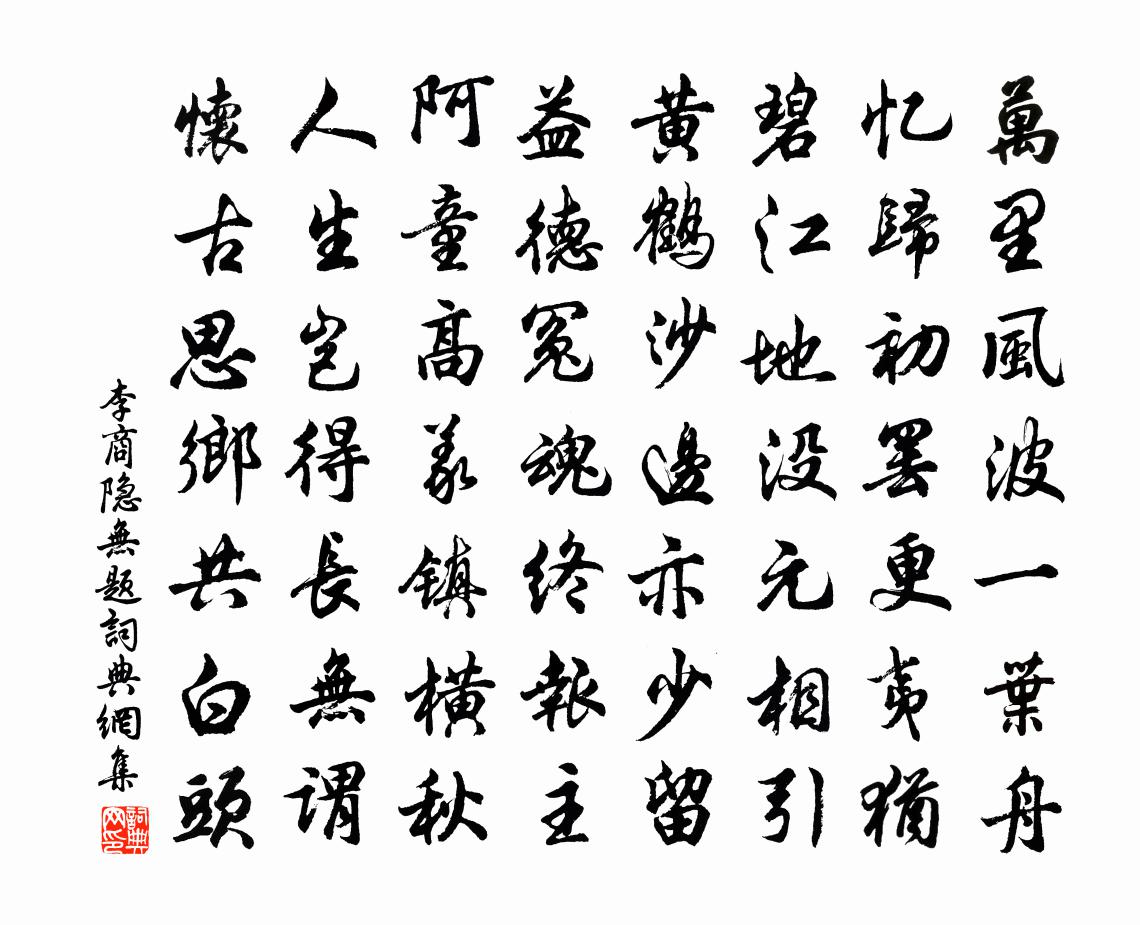 萬里風波一葉舟
忆歸初罢更夷猶
碧江地没元相引
黄鶴沙邊亦少留
益德冤魂终報主
阿童高義镇横秋
人生岂得長無謂
懷古思鄉共白頭
李商隐無题詞典網集
詞典网印